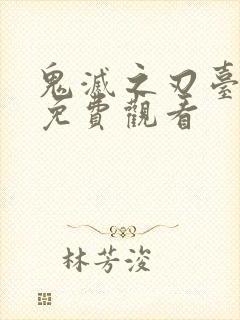 鬼滅之刃臺
免費觀看
林芳浚